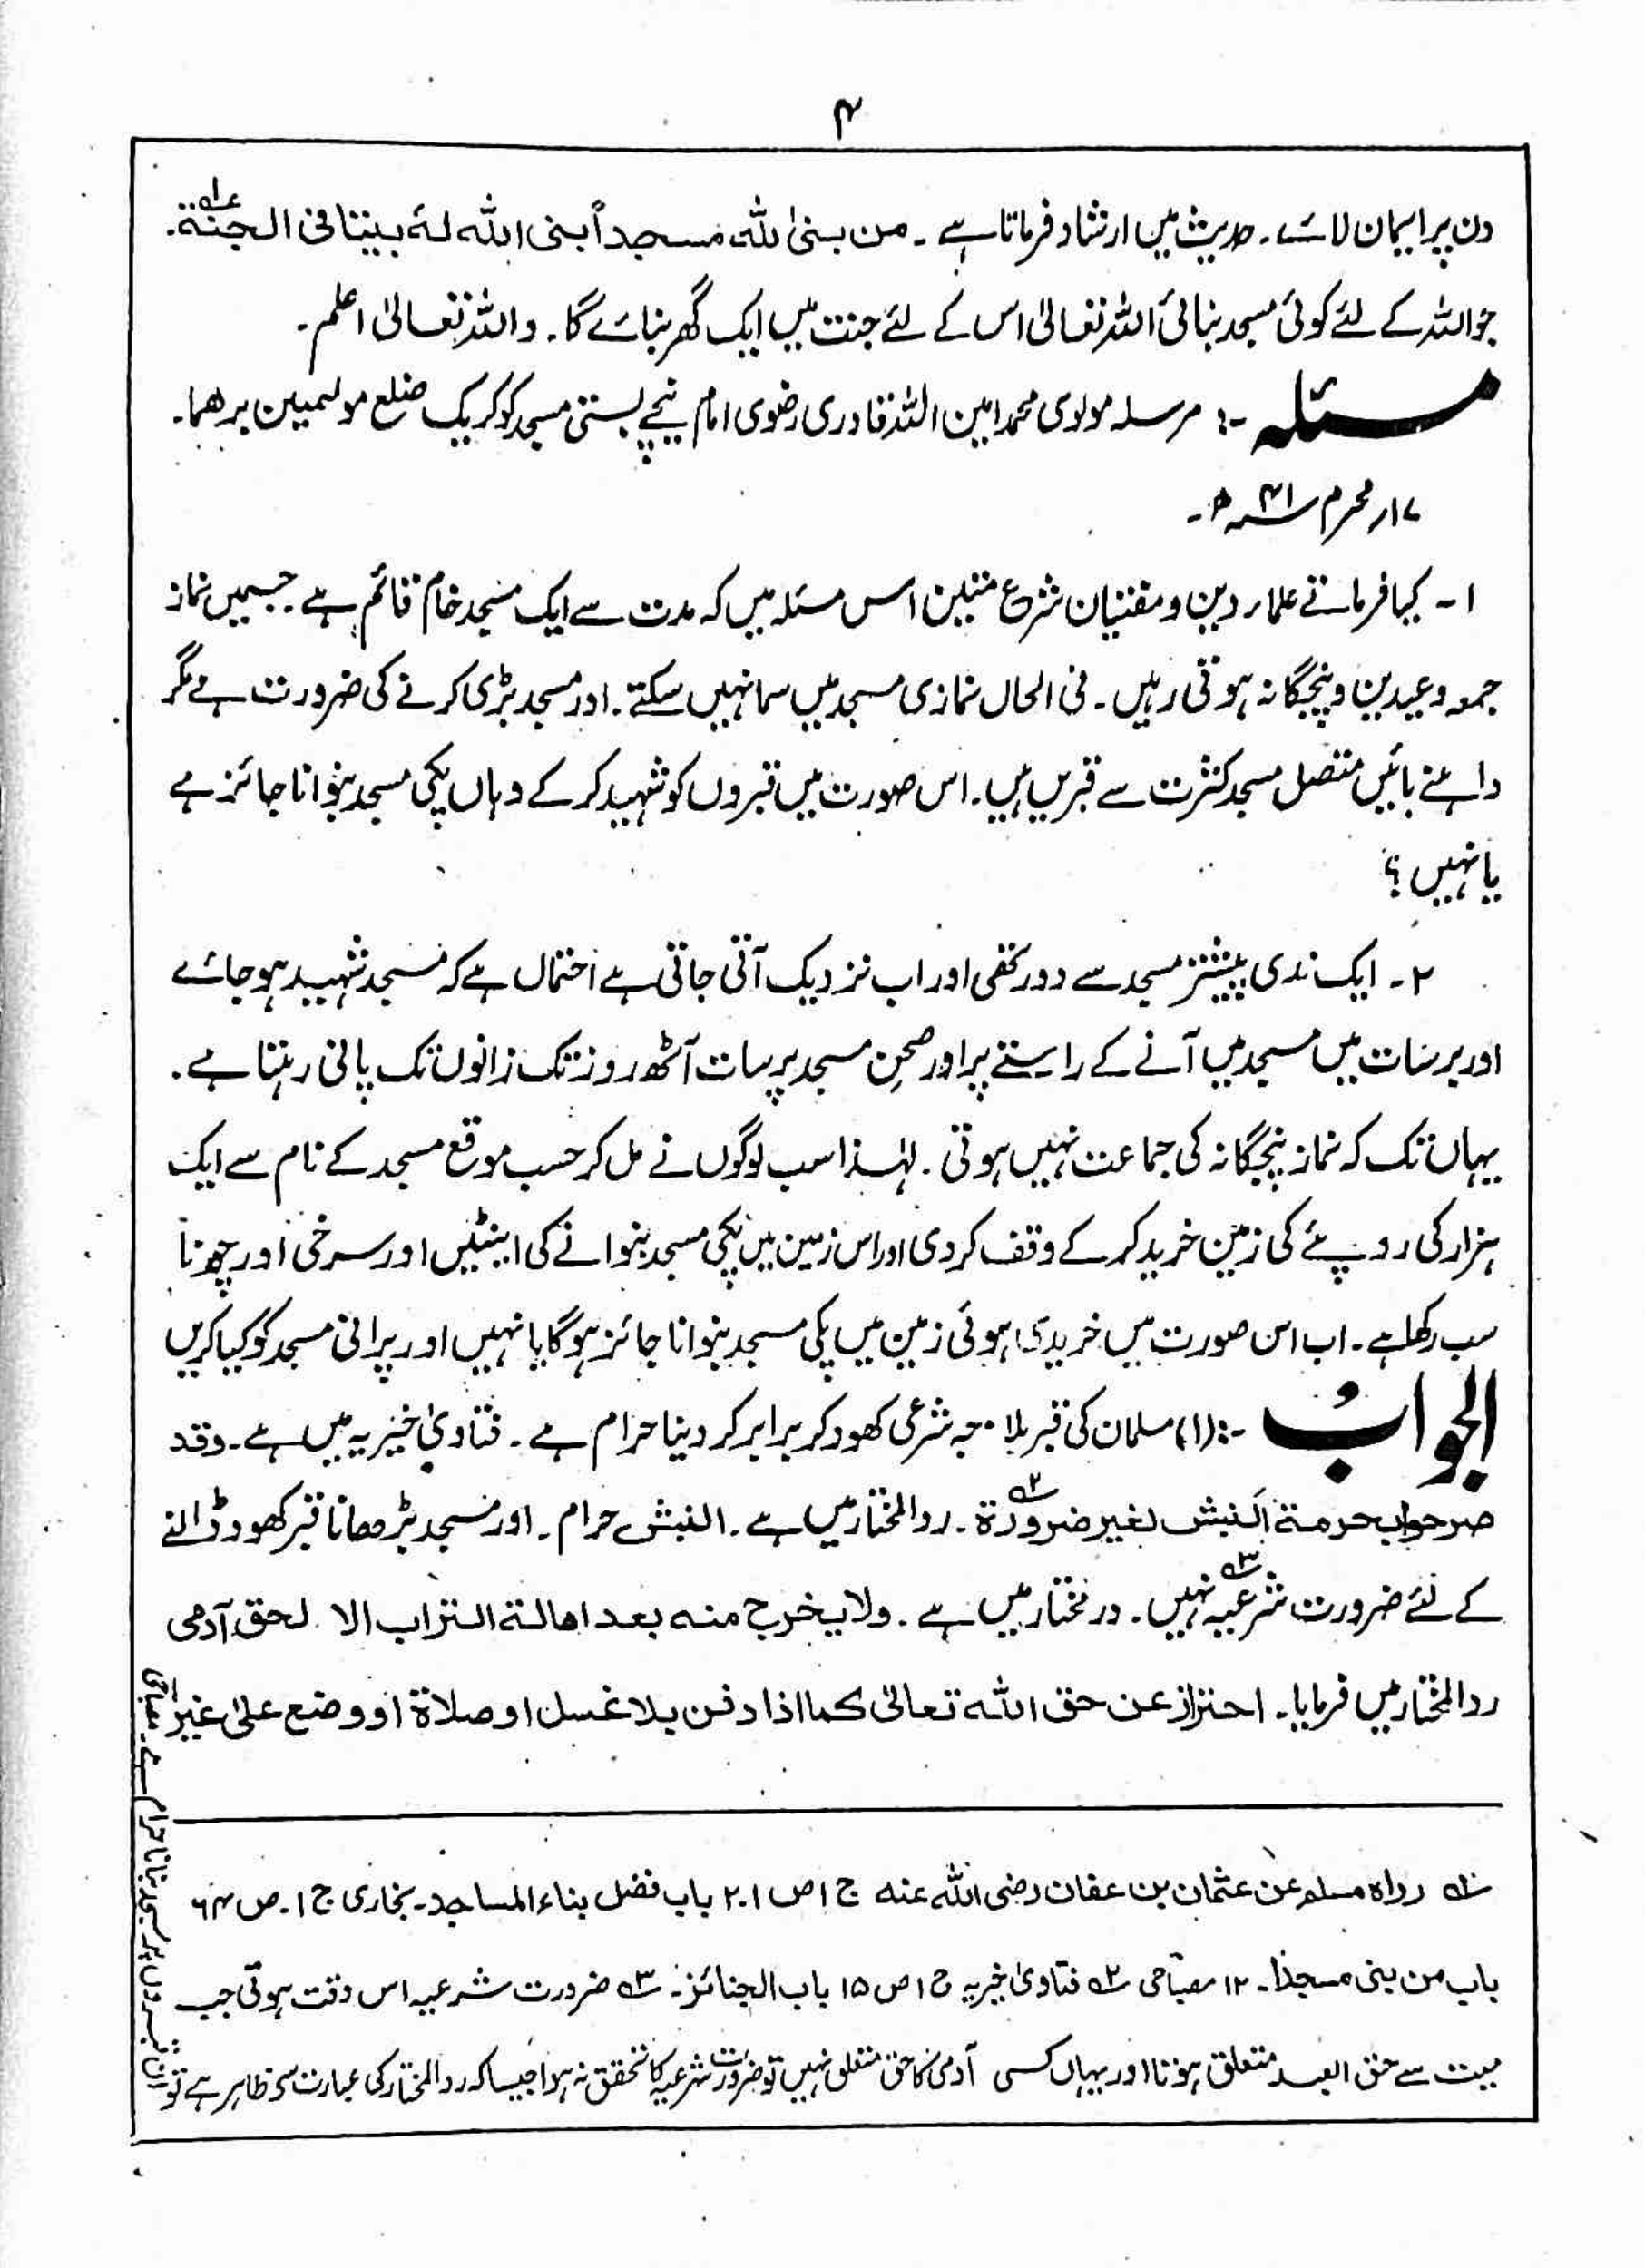 ۴
دن پر ایمان لائے۔ حدیث میں ارشاد فرماتا ہے ۔ من بنیٰ للہ مسجداً بنی اللہ لہٗ بیتا فی الجنۃ۔ ؎۱
جو اللہ کے لئے کوئی مسجد بنائی اللہ تعالیٰ اس کے لئے جنت میں ایک گھر بنائے گا۔ واللہ تعالیٰ اعلم۔
مسئلہ :۔ مرسلہ مولوی محمد امین اللہ قادری رضوی امام نیچے بستی مسجد کوکریک ضلع مولمیین برھما۔
۱۷؍ محرم ۴۱ھ ۔
۱ ۔ کیا فرماتے علماء دین و مفتیان شرع متین اس مسئلہ میں کہ مدت سے ایک مسجد خام قائم ہے۔ جسمیں نماز
جمعہ و عیدین و پنجگانہ ہوتی رہیں ۔ فی الحال نمازی مسجد میں سما نہیں سکتے۔ اور مسجد بڑی کرنے کی ضرورت ہے مگر
داہنے بائیں متصل مسجد کثرت سے قبریں ہیں۔ اس صورت میں قبروں کو شہید کر کے وہاں پکی مسجد بنوانا جائز ہے
یا نہیں ؟
۲ ۔ ایک ندی پیشتر مسجد سے دور تھی اور اب نزدیک آتی جاتی ہے احتمال ہے کہ مسجد شہید ہو جائے
اور برسات میں مسجد میں آنے کے راستے پر اور صحن مسجد پر سات آٹھ روز تک زانوں تک پانی رہتا ہے۔
یہاں تک کہ نماز پنجگانہ کی جماعت نہیں ہوتی ۔ لہٰذا سب لوگوں نے مل کر حسب موقع مسجد کے نام سے ایک
ہزار کی روپئے کی زمین خرید کر کے وقف کر دی اور اس زمین میں پکی مسجد بنوانے کی اینٹیں اور سرخی اور چونا
سب رکھا ہے ۔ اب اس صورت میں خریدی ہوئی زمین میں پکی مسجد بنوانا جائز ہو گا یا نہیں اور پرانی مسجد کو کیا کریں
الجوابُ :۔ (۱) مسلمان کی قبر بلا وجہ شرعی کھود کر برابر کر دینا حرام ہے ۔ فتاویٰ خیریہ میں ہے۔ وقد
صرحوا بحرمۃ النبش لغیر ضرورۃ ؎۲ ۔ رد المختار میں ہے ۔ النبش حرام ۔ اور مسجد بڑھانا قبر کھود ڈالنے
کے لئے ضرورت شرعیہ ؎۳ نہیں ۔ در مختار میں ہے ۔ ولا یخرج منہ بعد اھالۃ التراب الا لحق آدمی
رد المختار میں فرمایا ۔ احتراز عن حق اللہ تعالیٰ کما اذا دفن بلا غسل او صلاۃ او وضع علیٰ غیر
؎۱ رواہ مسلم عن عثمان بن عفان رضی اللہ عنہ ج ۱ ص ۲۰۱ باب فضل بناء المساجد ۔ بخاری ج ۱ ۔ ص ۶۴
باب من بنی مسجدًا ۔ ۱۲ مصباحی ؎۲ فتاویٰ خیریہ ج ۱ ص ۱۵ باب الجنائز ۔ ؎۳ ضرورت شرعیہ اس وقت ہوتی جب
میت سے حق العبد متعلق ہوتا اور یہاں کسی آدمی کا حق متعلق نہیں تو ضرورت شرعیہ کا تحقق نہ ہوا جیسا کہ رد المختار کی عبارت سے ظاہر ہے تو
ان قبروں پر مسجد بنانا حرام ہے ۔ مصباحی